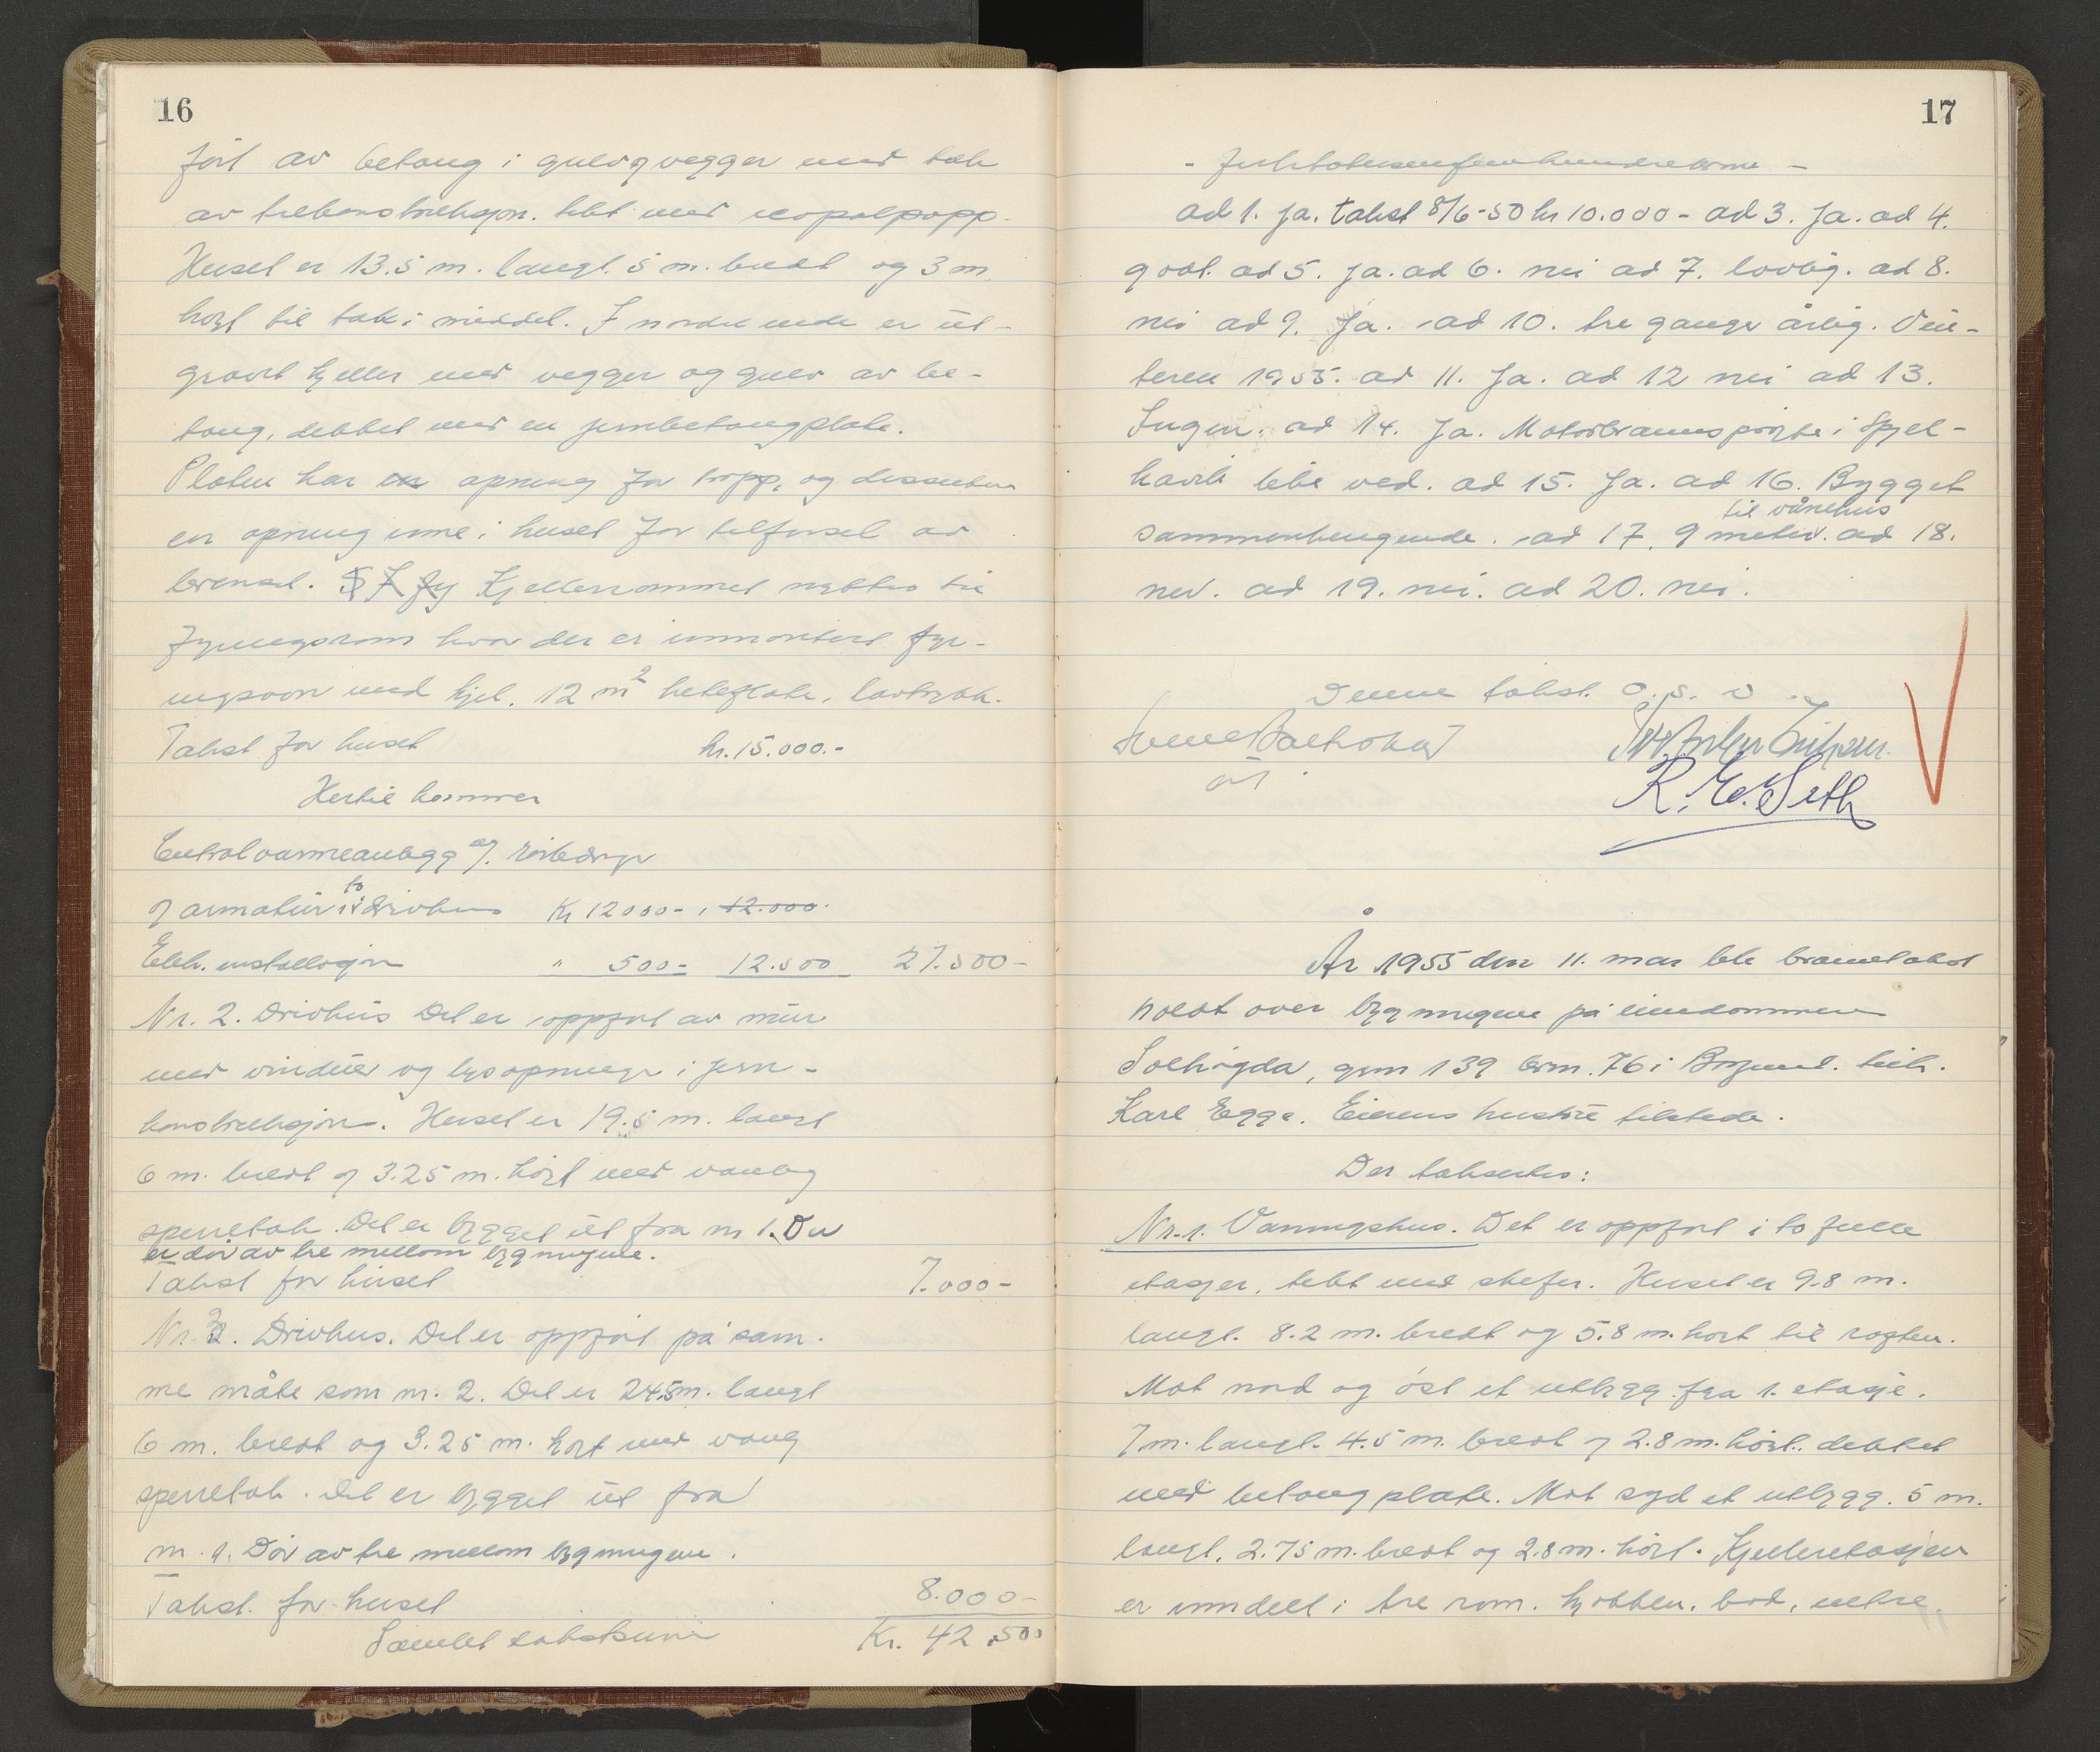 16
ført av betong i gulv og vegger med tak
av trekonstruksjon. tekt med icopalpapp.
Huset er 13.5 m. langt. 5 m. bredt og 3 m.
høgt til tak i middel. I nordre ende er ut-
gravet kjeller med vegger og gulv av be-
tong, dekket med en jernbetongplate.
Platen har en åpning for trapp, og dessuten
en åpning inne i huset for tilførsel av
brensel. Kjellerrommet nyttes til
fyringsrom hvor der er innmontert fyr-
ingsovn med kjel. 12 m² heteflate, lavtrykk.
Takst for huset kr. 15.000.-
Hertil kommer
Centralvarmeanlegg m/. rørledninger
og armatur i to drivhus Kr 12000- , 12.000.
Elek. installasjon " 500- 12.500 27.500-
Nr. 2. Drivhus Det er oppført av mur
med vinduer og lysåpninger i jern-
konstruksjon. Huset er 19.5 m. langt
6 m. bredt og 3.25 m. høgt med vanlig
sperretak. Det er bygget ut fra nr 1. Der
er dør av tre mellom bygningene.
Takst for huset 7.000-
Nr. 3. Drivhus. Det er oppført på sam-
me måte som nr. 2. Det er 24.5 m. langt
6 m. bredt og 3.25 m. høgt med vanlig
sperretak. Det er bygget ut fra
nr. 1. Dør av tre mellom bygningene.
Takst. for huset 8.000-
Samlet takstsum Kr. 42.500
17
- førtitotusenfemhundrekroner -
ad 1. Ja. takst 8/6-50 kr 10.000- ad 3. Ja. ad 4.
godt. ad 5. Ja. ad 6. nei ad 7. lovlig. ad 8.
nei ad 9. Ja. ad 10. tre ganger årlig. Vin-
teren 1955. ad 11. Ja. ad 12 nei ad 13.
Ingen. ad 14. Ja. Motorbrannsprøyte i Spjel-
kavik like ved. ad 15. Ja. ad 16. Bygget
til vånehus
sammenhengende. ad 17. 9 meter. ad 18.
nei. ad 19. nei. ad 20. nei.
Denne takst. o. s. v.
R. E. Seth
År 1955 den 11. mar ble branntakst
holdt over bygningene på eiendommen
Solhøgda, gnr 139 brn. 76 i Borgund. tilh.
Karl Egge. Eierens hustru tilstede.
Der takseres:
Nr. 1. Våningshus. Det er oppført i to fulle
etasjer, tekt med skifer. Huset er 9.8 m.
langt. 8.2 m. bredt og 5.8 m. høgt til røsten.
Mot nord og øst et utbygg fra 1. etasje.
7 m. langt. 4.5 m. bredt og 2.8 m. høgt. dekket
med betongplate. Mot syd et utbygg. 5 m.
langt. 2.75 m. bredt og 2.8 m. høgt. Kjelleretasjen
er inndelt i tre rom. kjøkken, bod,